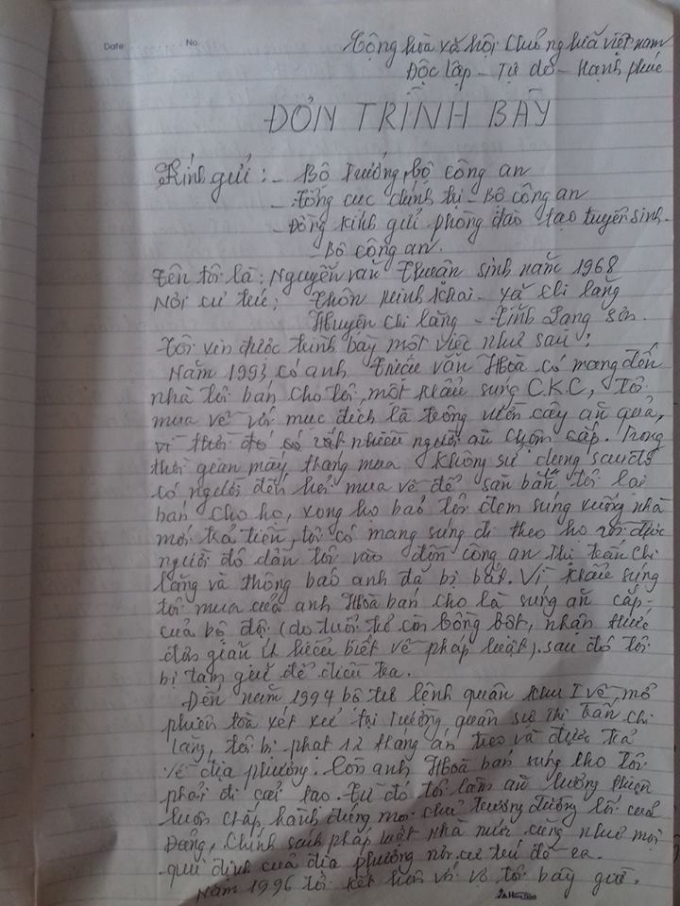 Date No.
Cộng hòa xã hội Chủ nghĩa việt nam
Độc lập - Tự do - Hạnh phúc
ĐƠN TRÌNH BÀY
Kính gửi: - Bộ Trưởng bộ công an
- Tổng cục chính trị - Bộ công an
- Đồng kính gửi phòng đào tạo tuyển sinh -
- Bộ công an.
Tên tôi là: Nguyễn văn Thuận sinh năm 1968
Nơi cư trú: Thôn minh khai - xã chi lăng
Huyện chi lăng - Tỉnh Lạng Sơn.
Tôi xin được trình bày một việc như sau:
Năm 1993 có anh Triệu văn Hoà có mang đến
nhà tôi bán cho tôi, một khẩu súng C.K.C, tôi
mua về với mục đích là trông vườn cây ăn quả,
vì thời đó có rất nhiều người ăn trộm cắp. Trong
thời gian mấy tháng mua không sử dụng sau đó
có người đến hỏi mua về để săn bắn tôi lại
bán cho họ, xong họ bảo tôi đem súng xuống nhà
mới trả tiền, tôi có mang súng đi theo họ rồi được
người đó dẫn tôi vào đồn công an thị trấn chi
lăng và thông báo anh đã bị bắt. Vì khẩu súng
tôi mua của anh Hoà bán cho là súng ăn cắp
của bộ đội (do tuổi trẻ còn bồng bột, nhận thức
đơn giản ít hiểu biết về pháp luật). sau đó tôi
bị tạm giữ để điều tra.
Đến năm 1994 bộ tư lệnh quân khu I về mở
phiên tòa xét xử tại trường quân sự thị trấn chi
lăng, tôi bị phạt 12 tháng án treo và được trả
về địa phương. Còn anh Hoà bán súng cho tôi
phải đi cải tạo. từ đó tôi làm ăn lương thiện
luôn chấp hành đúng mọi chủ trương đường lối của
Đảng, chính sách pháp luật nhà nước cũng như mọi
qui định của địa phương nơi cư trú đề ra.
Năm 1996 tôi kết hôn với vợ tôi bây giờ.